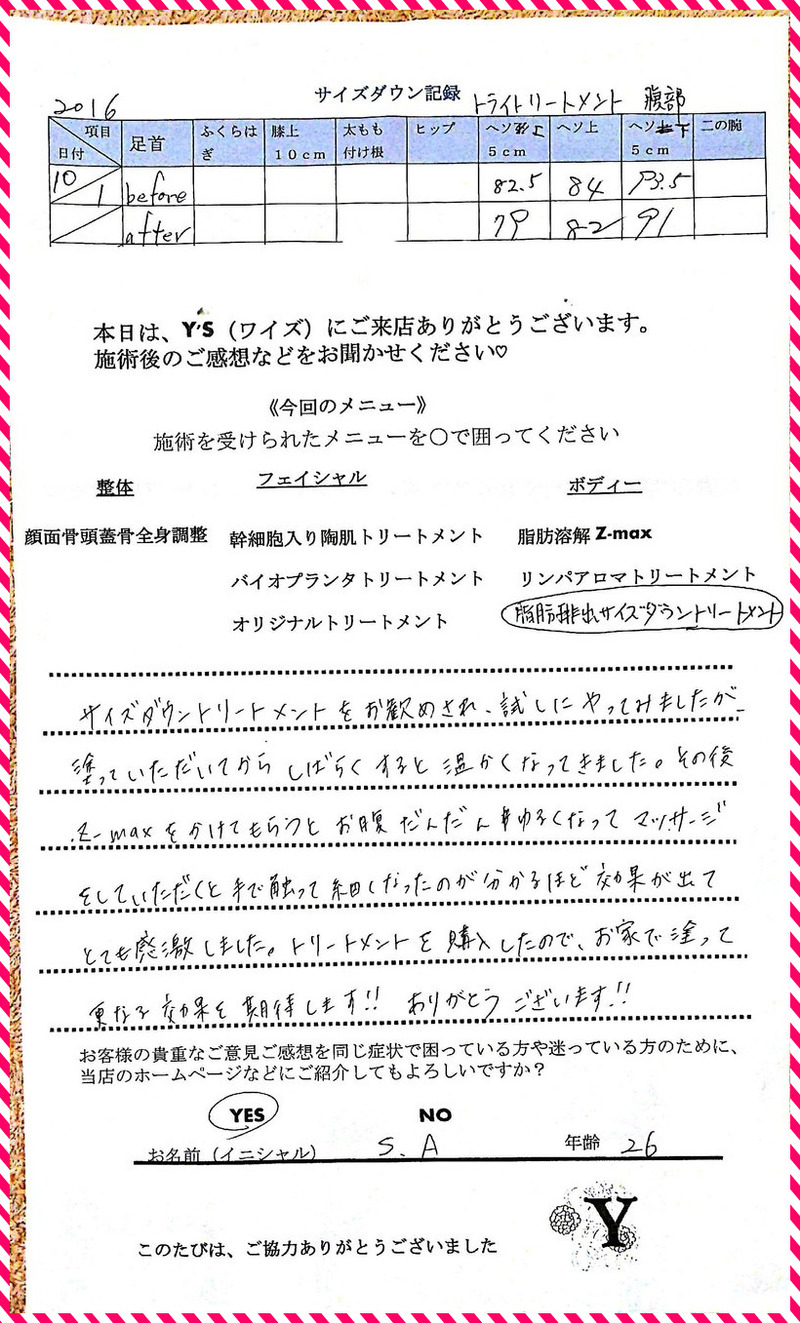 2016
サイズダウン記録 トライトリートメント 腹部
項目 日付 足首 ふくらはぎ 膝上10cm 太もも付け根 ヒップ ヘソ上5cm ヘソ上 ヘソ下5cm 二の腕
10/1 before 82.5 84 93.5
after 79 82 91
本日は、Y'S（ワイズ）にご来店ありがとうございます。
施術後のご感想などをお聞かせください♡
《今回のメニュー》
施術を受けられたメニューを〇で囲ってください
整体 フェイシャル ボディー
顔面骨頭蓋骨全身調整 幹細胞入り陶肌トリートメント 脂肪溶解 Z-max
バイオプランタトリートメント リンパアロマトリートメント
オリジナルトリートメント 脂肪排出サイズダウントリートメント
サイズダウントリートメントをお勧めされ、試しにやってみましたが、
塗っていただいてからしばらくすると温かくなってきました。その後
Z-maxをかけてもらうとお腹だんだんゆるくなってマッサージ
をしていただくと手で触って細くなったのが分かるほど効果が出て
とても感激しました。トリートメントを購入したので、お家で塗って
更なる効果を期待します!! ありがとうございます!!
お客様の貴重なご意見ご感想を同じ症状で困っている方や迷っている方のために、
当店のホームページなどにご紹介してもよろしいですか？
YES NO
お名前（イニシャル） S.A 年齢 26
Y
このたびは、ご協力ありがとうございました